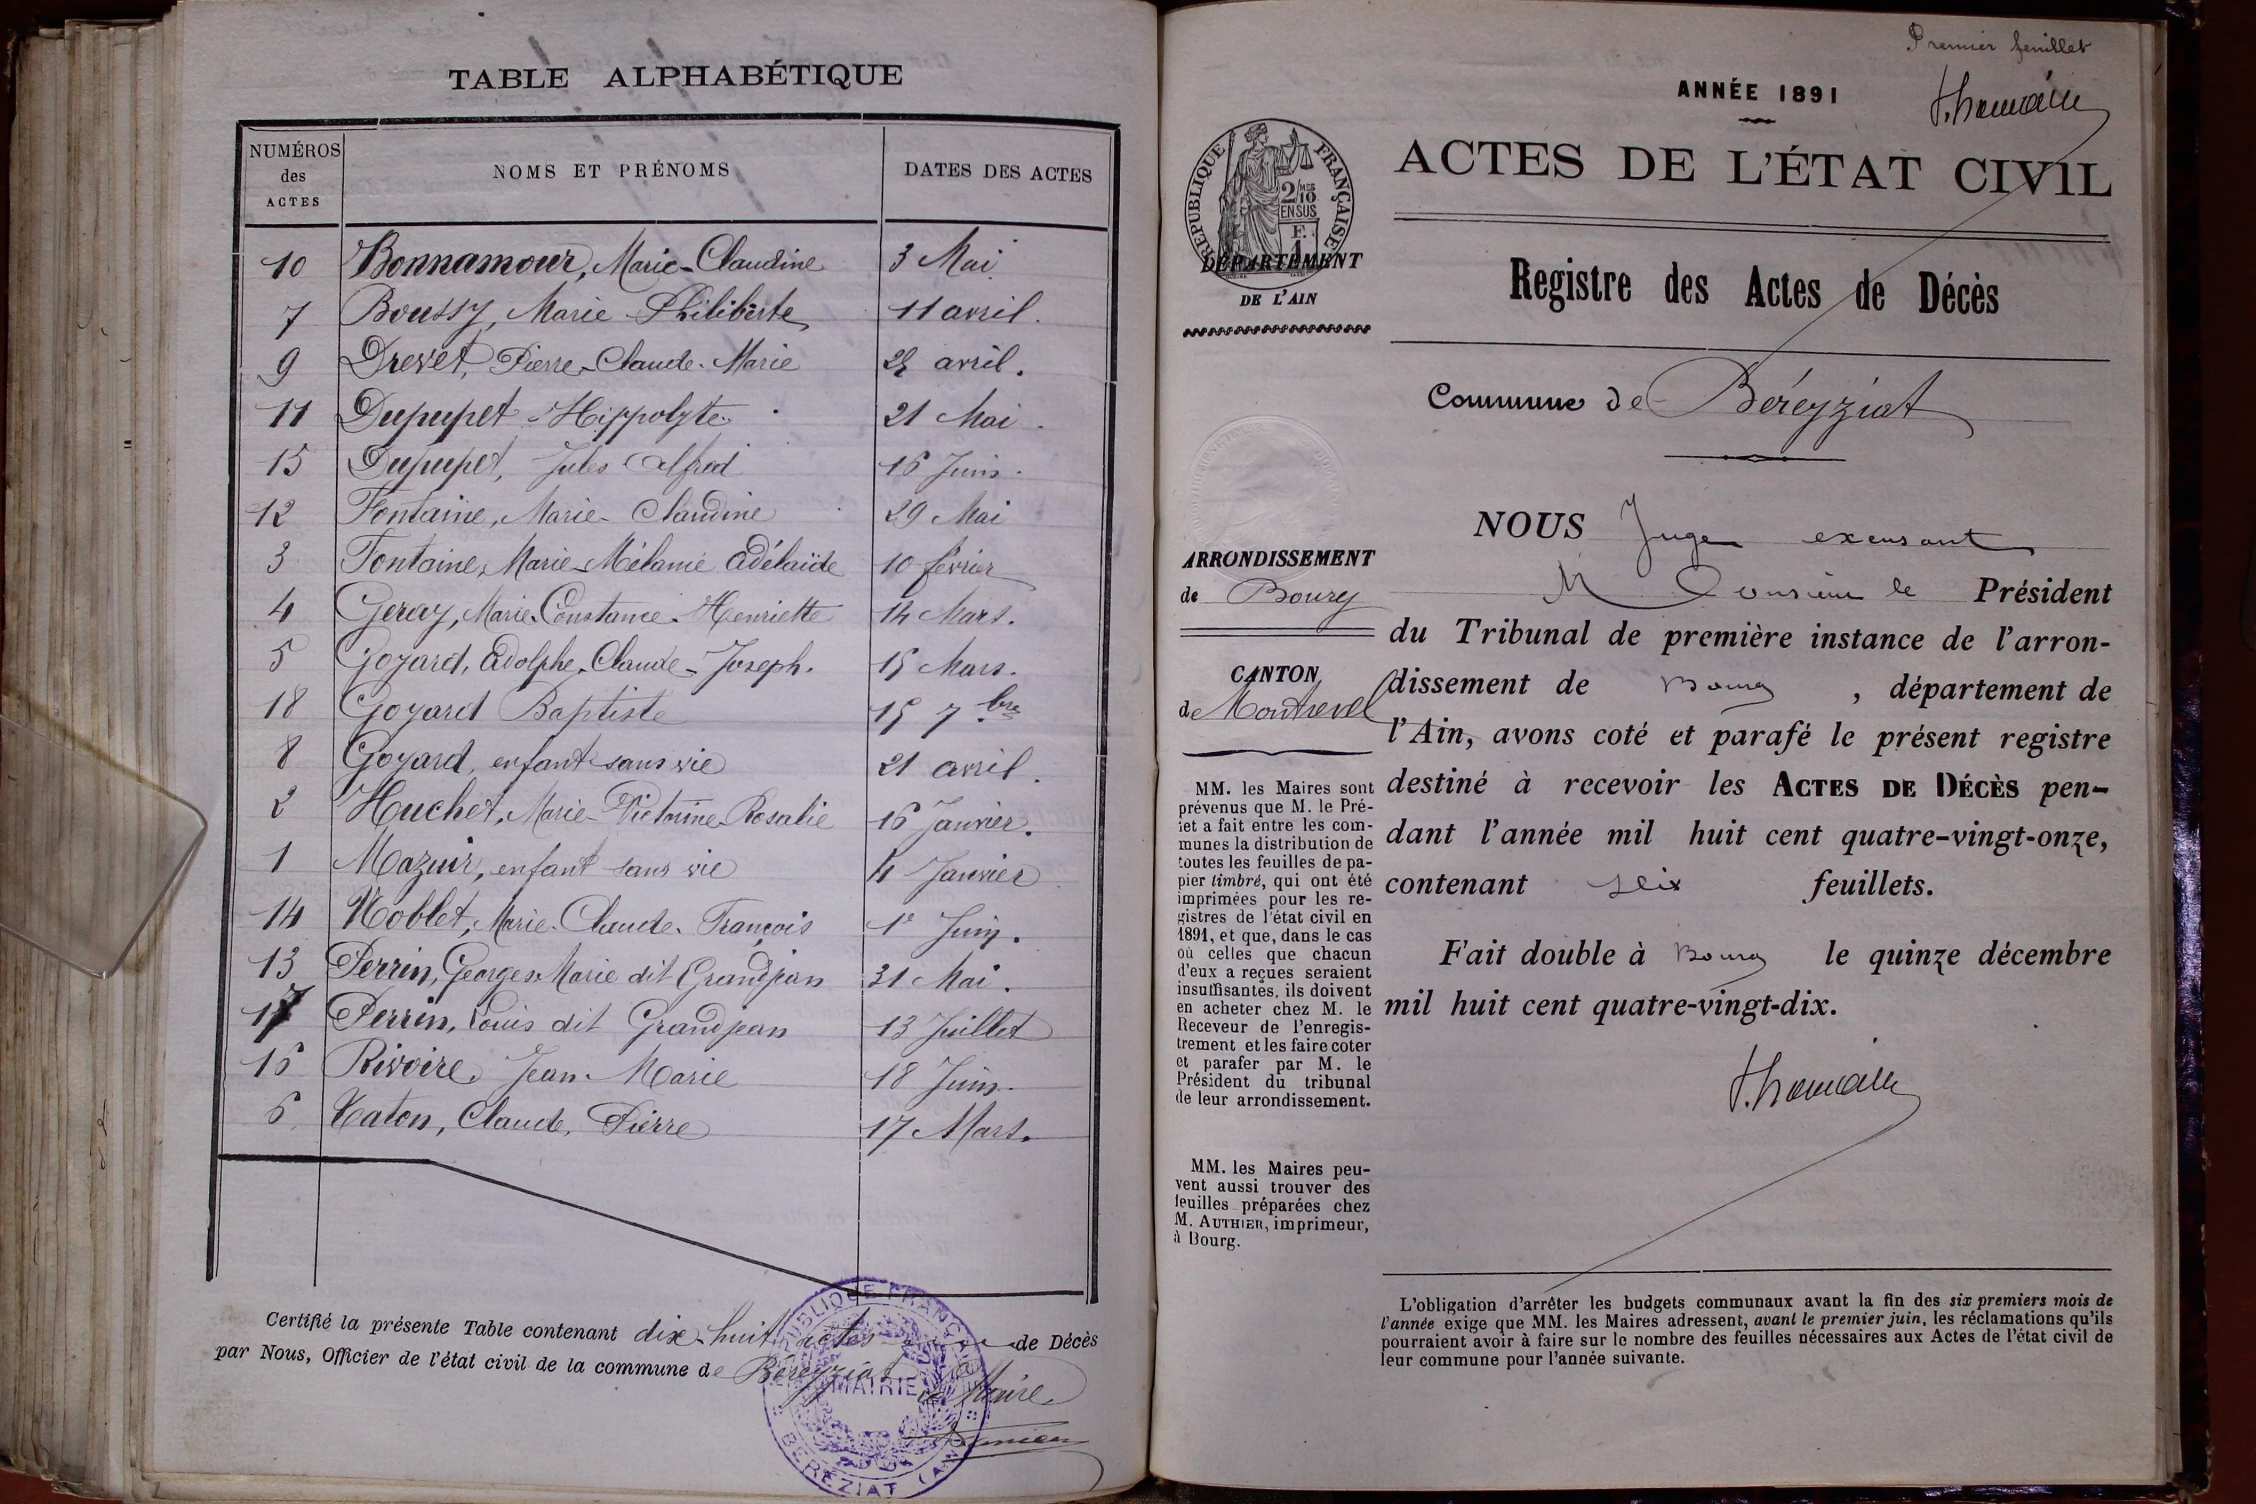 TABLE ALPHABÉTIQUE
NUMÉROS des ACTES NOMS ET PRÉNOMS DATES DES ACTES
10 Bonnamour, Marie-Claudine 3 Mai
7 Boussy, Marie Philiberte 11 avril.
9 Drevet, Pierre-Claude-Marie avril.
11 Dupupet Hippolyte 21 Mai.
15 Dupupet, Jules Alfred 16 Juin.
12 Fontaine, Marie-Claudine 29 Mai
3 Fontaine, Marie-Mélanie Adélaïde 10 février
4 Geray, Marie-Constance-Henriette 14 Mars.
5 Goyard, Adolphe-Claude-Joseph. 15 Mars.
18 Goyard Baptiste 15 7bre
8 Goyard, enfant sans vie 21 avril.
2 Huchet, Marie-Victorine-Rosalie 16 Janvier.
1 Mazuir, enfant sans vie 4 Janvier
14 Noblet, Marie-Claude-François 1er Juin.
13 Perrin, Georges-Marie dit Grandjean 31 Mai.
17 Perrin, Louis dit Grandjean 13 Juillet
16 Rivoire, Jean-Marie 18 Juin.
6 Vaton, Claude, Pierre 17 Mars.
Certifié la présente Table contenant dix-huit actes de Décès
par Nous, Officier de l'état civil de la commune de Béreyziat
le Maire
RÉPUBLIQUE FRANÇAISE
MAIRIE
BÉRÉZIAT (AIN)
Premier feuillet
ANNÉE 1891
ACTES DE L'ÉTAT CIVIL
RÉPUBLIQUE FRANÇAISE
2/10MES
EN SUS
F.
1
DÉPARTEMENT
DE L'AIN
Registre des Actes de Décès
Commune de Béreyziat
ARRONDISSEMENT
de Bourg
CANTON
de Montrevel
MM. les Maires sont
prévenus que M. le Pré-
fet a fait entre les com-
munes la distribution de
toutes les feuilles de pa-
pier timbré, qui ont été
imprimées pour les re-
gistres de l'état civil en
1891, et que, dans le cas
où celles que chacun
d'eux a reçues seraient
insuffisantes, ils doivent
en acheter chez M. le
Receveur de l'enregis-
trement et les faire coter
et parafer par M. le
Président du tribunal
de leur arrondissement.
MM. les Maires peu-
vent aussi trouver des
feuilles préparées chez
M. AUTHIER, imprimeur,
à Bourg.
NOUS Juge excusant
Monsieur le Président
du Tribunal de première instance de l'arron-
dissement de Bourg, département de
l'Ain, avons coté et parafé le présent registre
destiné à recevoir les ACTES DE DÉCÈS pen-
dant l'année mil huit cent quatre-vingt-onze,
contenant six feuillets.
Fait double à Bourg le quinze décembre
mil huit cent quatre-vingt-dix.
L'obligation d'arrêter les budgets communaux avant la fin des six premiers mois de
l'année exige que MM. les Maires adressent, avant le premier juin, les réclamations qu'ils
pourraient avoir à faire sur le nombre des feuilles nécessaires aux Actes de l'état civil de
leur commune pour l'année suivante.